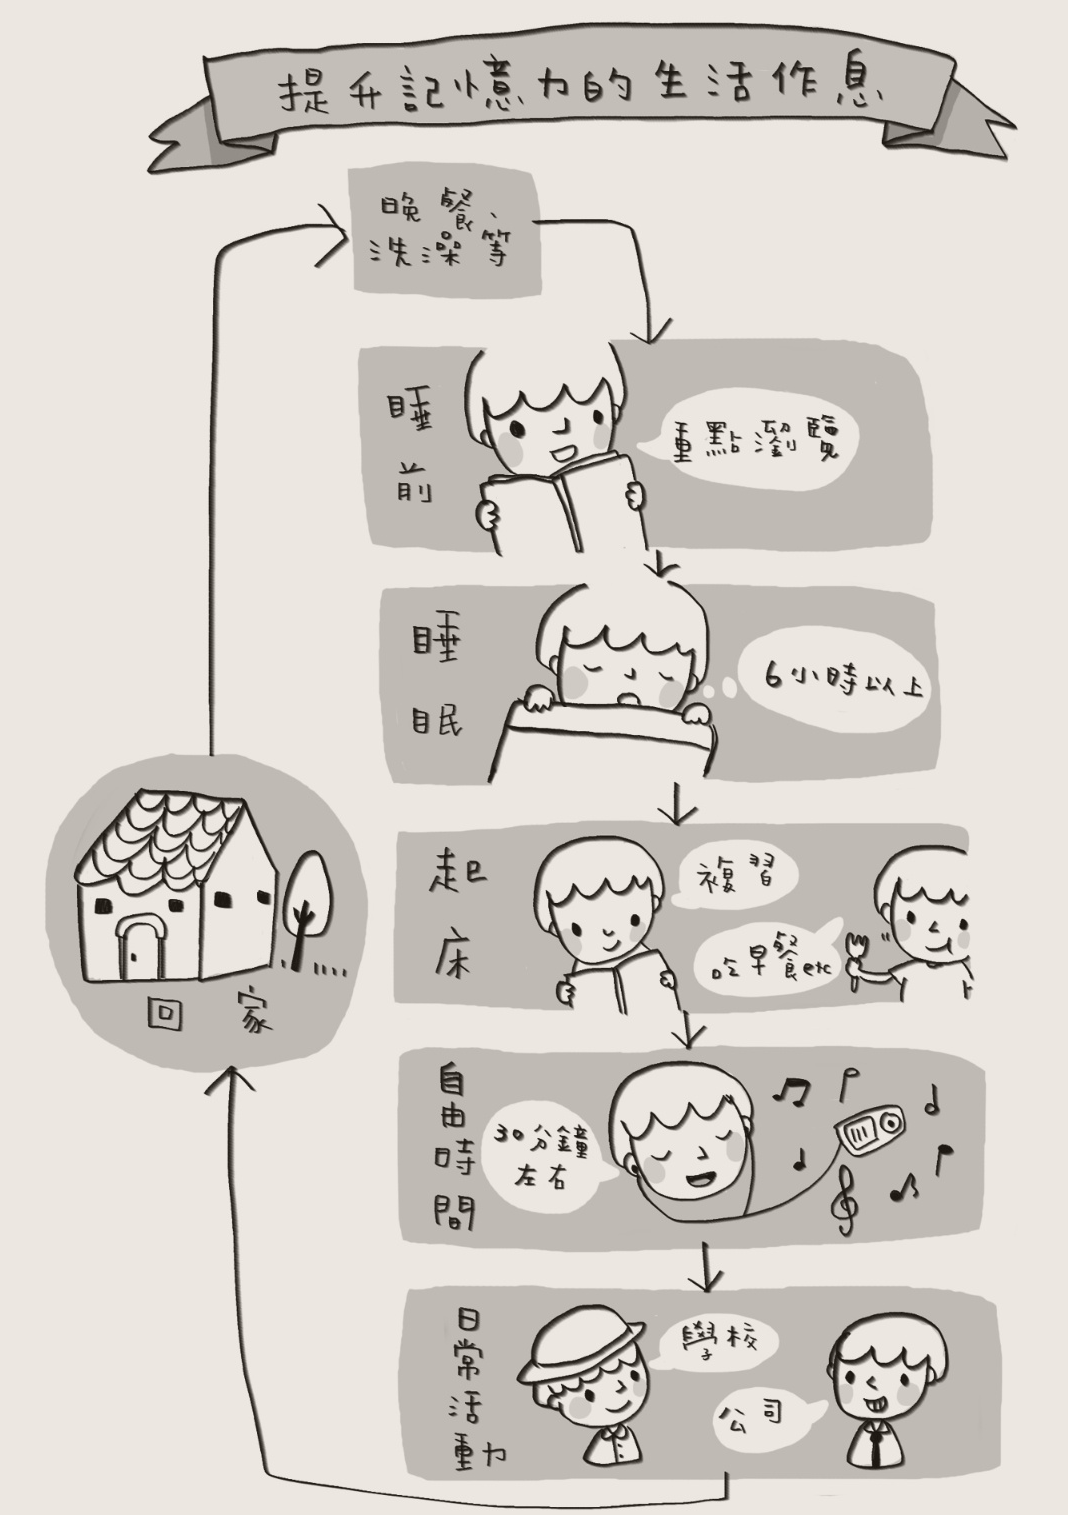 提升記憶力的生活作息
晚餐、
洗澡等
睡前
重點瀏覽
睡眠
6小時以上
起床
複習
吃早餐etc
自由時間
30分鐘
左右
日常活動
學校
公司
回家